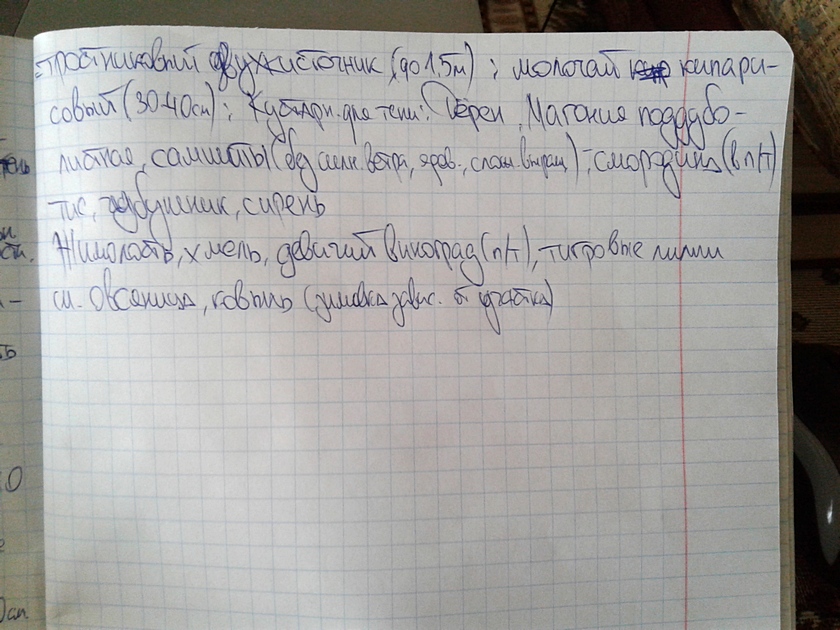 тростниковый двукисточник (до 1,5м); молочай кипари-
совый (30-40см); Кустарн. для тени: Дерен, Магония поддубо-
листная, самшиты (без сильн. ветра, ядов., слож. выращ); смородина (в п/т)
тис, чубушник, сирень
Жимолость, хмель, девичий виноград (п/т), тигровые лилии
см. овсяница, ковыль (зимовка завис. от участка)
тель
си.
-
ть
0
0см